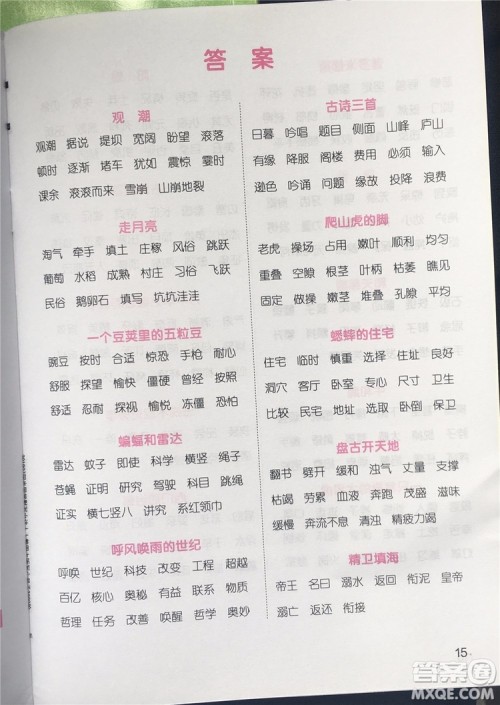 答案
观潮
观潮 据说 堤坝 宽阔 盼望 滚落
顿时 逐渐 堵车 犹如 震惊 霎时
课余 滚滚而来 雪崩 山崩地裂
走月亮
淘气 牵手 填土 庄稼 风俗 跳跃
葡萄 水稻 成熟 村庄 习俗 飞跃
民俗 鹅卵石 填写 坑坑洼洼
一个豆荚里的五粒豆
豌豆 按时 合适 惊恐 手枪 耐心
舒服 探望 愉快 僵硬 曾经 按照
舒适 忍耐 探视 愉悦 冻僵 恐怕
蝙蝠和雷达
雷达 蚊子 即使 科学 横竖 绳子
苍蝇 证明 研究 驾驶 科目 跳绳
证实 横七竖八 讲究 系红领巾
呼风唤雨的世纪
呼唤 世纪 科技 改变 工程 超越
百亿 核心 奥秘 有益 联系 物质
哲理 任务 改善 唤醒 哲学 奥妙
古诗三首
日暮 吟唱 题目 侧面 山峰 庐山
有缘 降服 阁楼 费用 必须 输入
逊色 吟诵 问题 缘故 投降 浪费
爬山虎的脚
老虎 操场 占用 嫩叶 顺利 均匀
重叠 空隙 根茎 茎叶 枯萎 瞧见
固定 做操 嫩茎 堆叠 孔隙 平均
蟋蟀的住宅
住宅 临时 慎重 选择 住址 良好
洞穴 客厅 卧室 专心 尺寸 卫生
比较 民宅 地址 选取 卧倒 保卫
盘古开天地
翻书 劈开 缓和 浊气 丈量 支撑
枯竭 劳累 血液 奔跑 茂盛 滋味
缓慢 奔流不息 清浊 精疲力竭
精卫填海
帝王 名曰 溺水 返回 衔泥 皇帝
溺亡 返还 衔接
15
答案圈
MXQE.COM